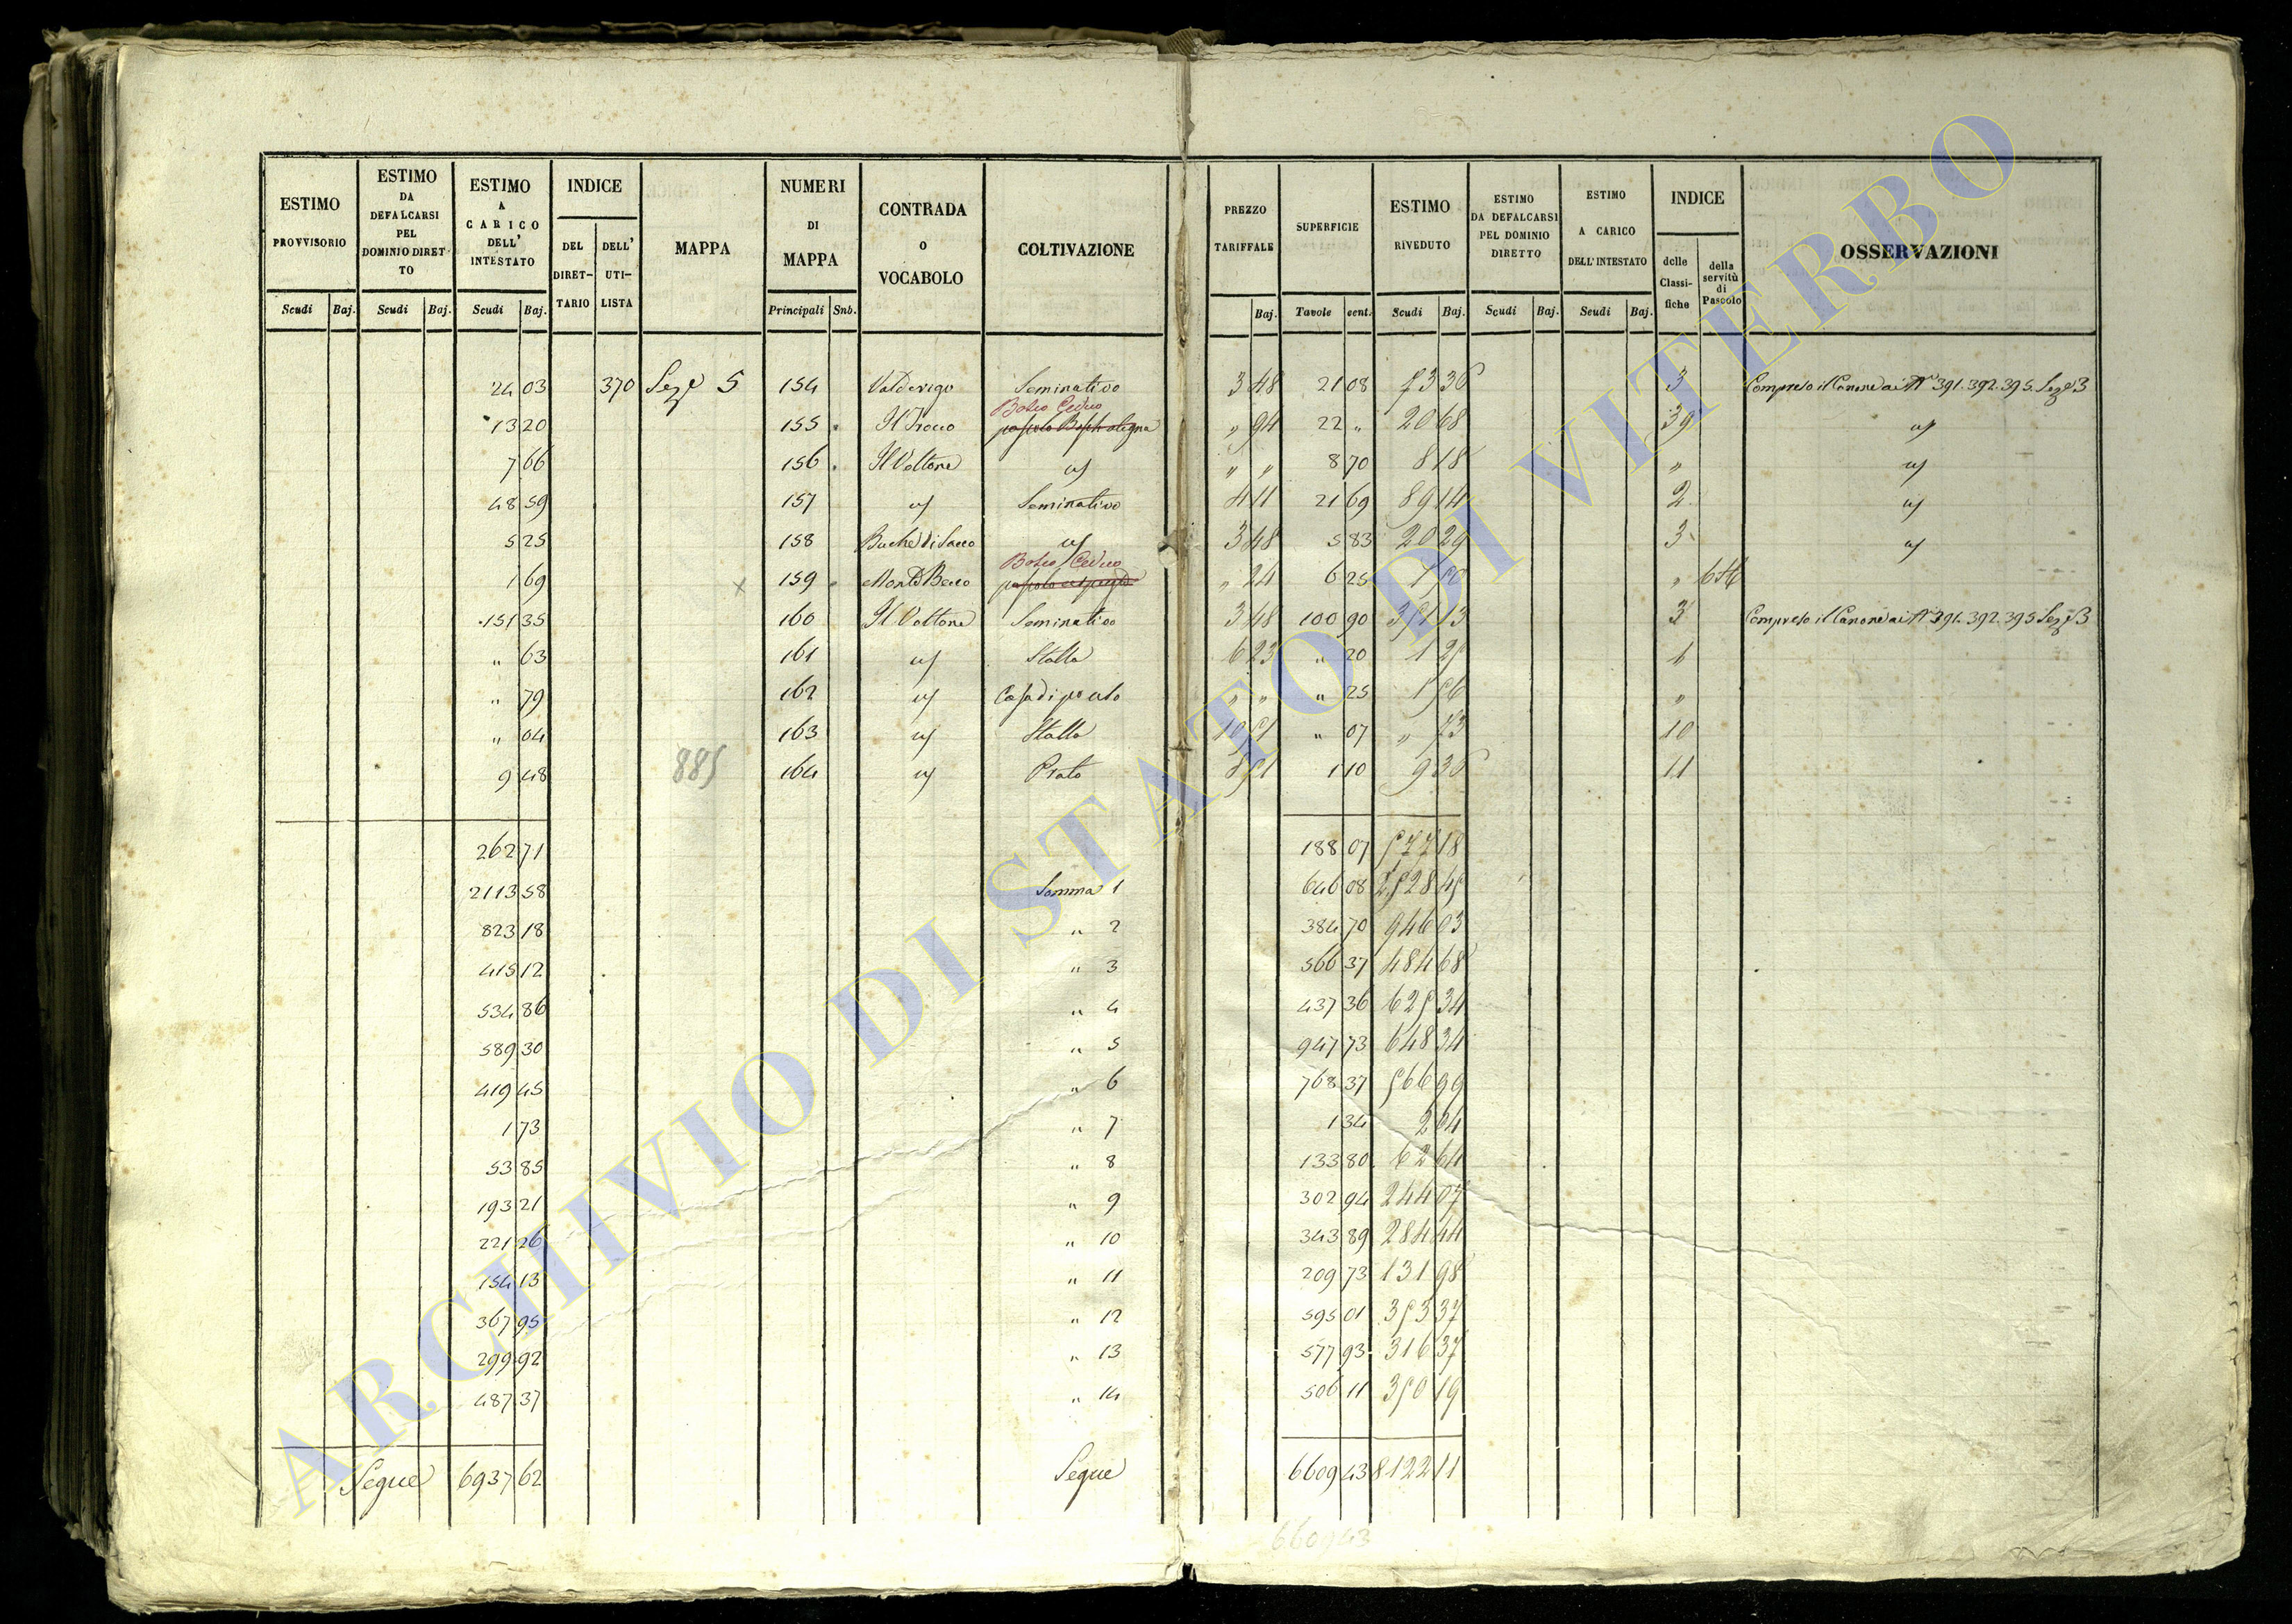 ESTIMO PROVVISORIO | ESTIMO DA DEFALCARSI PEL DOMINIO DIRETTO | ESTIMO A CARICO DELL' INTESTATO | INDICE DEL DIRETTARIO | DELL' UTILISTA | MAPPA | NUMERI DI MAPPA | CONTRADA O VOCABOLO | COLTIVAZIONE | PREZZO TARIFFALE | SUPERFICIE | ESTIMO RIVEDUTO | ESTIMO DA DEFALCARSI PEL DOMINIO DIRETTO | ESTIMO A CARICO DELL'INTESTATO | INDICE delle Classifiche | della servitù di Pascolo | OSSERVAZIONI
Scudi Baj. Scudi Baj. Scudi Baj. Principali Snb. Baj. Tavole cent. Scudi Baj. Scudi Baj. Scudi Baj.
24 03 370 Sez.e 5 154 Seminativo 3 48 21 08 73 36 3 Compreso il Canone ai N. 391. 392. 395. Sez.e 3
13 20 155 Bosco Ceduo „ 94 22 „ 20 68 39 u/
7 66 156 Il Voltone u/ „ „ 8 70 8 18 „ u/
48 59 157 u/ Seminativo 4 11 21 69 89 14 2 u/
5 25 158 Buche di Sacco u/ 3 48 5 83 20 29 3 u/
1 69 x 159 Bosco Ceduo „ 24 6 25 1 50 „
151 35 160 Il Voltone Seminativo 3 48 100 90 351 13 3 Compreso il Canone ai N. 391. 392. 395 Sez.e 3
„ 63 161 u/ Stalla 6 23 „ 20 1 25 1
„ 79 162 u/ „ „ „ 25 1 56 „
„ 04 163 u/ Stalla 10 51 „ 07 „ 73 10
9 48 885 164 u/ Prato 8 51 1 10 9 36 11
262 71 188 07 577 18
2113 58 Somma 1 646 08 2528 45
823 18 „ 2 384 70 946 03
415 12 „ 3 566 37 484 68
534 86 „ 4 437 36 625 34
589 30 „ 5 947 73 648 34
419 45 „ 6 768 37 566 99
1 73 „ 7 1 34 2 64
53 85 „ 8 133 80 62 64
193 21 „ 9 302 94 244 07
221 26 „ 10 343 89 284 44
154 13 „ 11 209 73 131 98
367 95 „ 12 595 01 353 37
299 92 „ 13 577 93 316 37
487 37 „ 14 506 11 350 19
Segue 6937 62 Segue 6609 43 8122 11
6609 43
ARCHIVIO DI STATO DI VITERBO